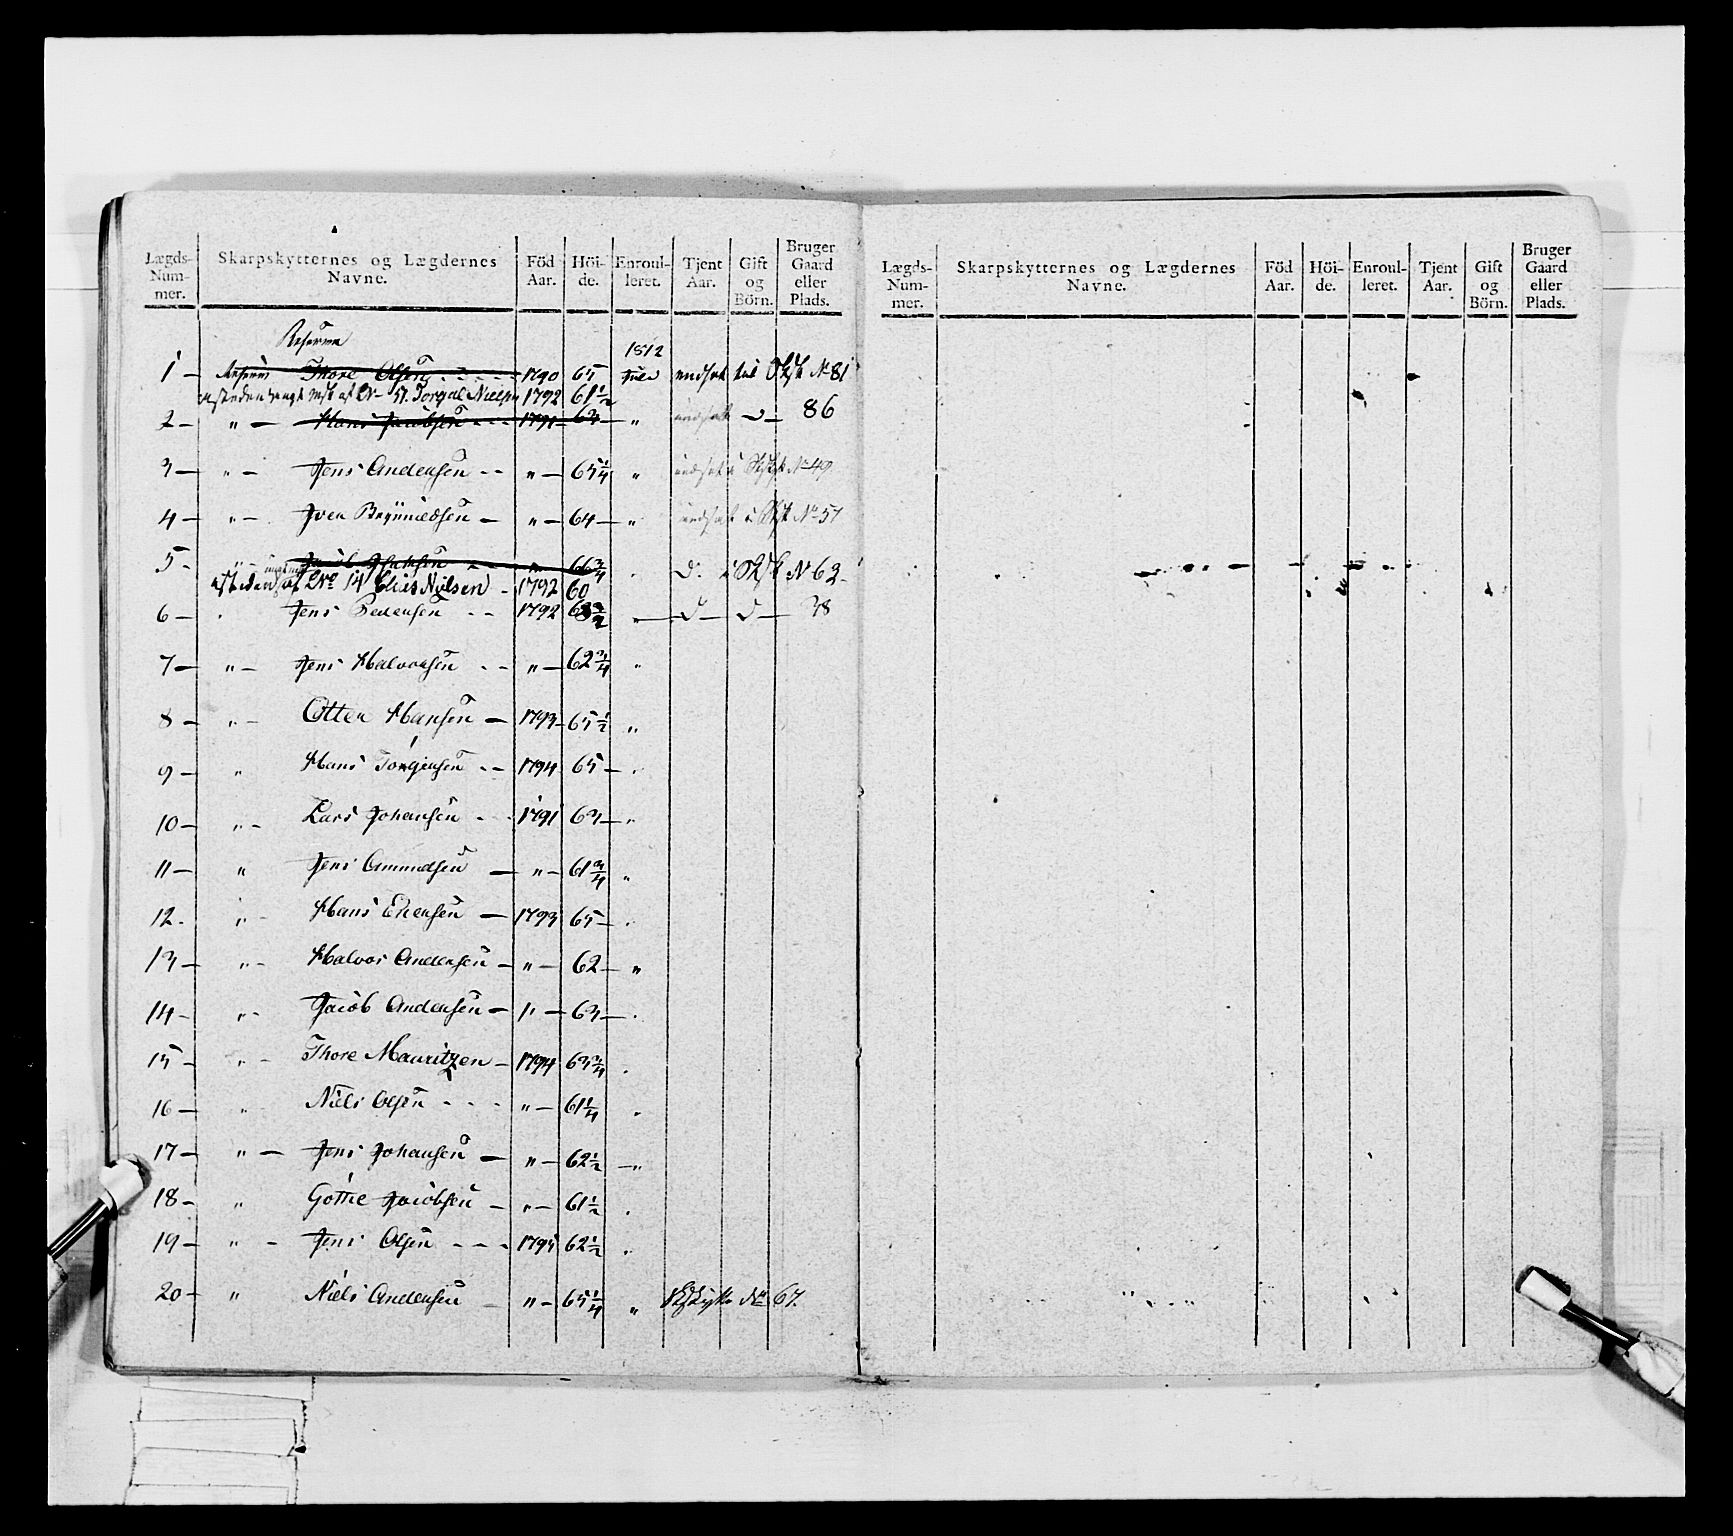 Lægds-Nummer. Skarpskytternes og Lægdernes Navne. Föd Aar. Höide. Enroulleret. Tjent Aar. Gift og Börn. Bruger Gaard eller Plads.
Reserve
1812
1 - Thore Olsen 1790 65 indsat til No 81
Nielsen 1792 61 1/2
2 - " - Hans Jacobsen 1791 63 " indsat D 86
3 - " - Jens Andersen - - " - 65 1/4 " indsat No 49
4 - " - Iver Bryniedsen - " - 64 - " indsat i No 57
5 - " - 66 3/4 D. i No 62
af No 14 Elias Nielsen - 1792 60
6 - Jens Pedersen - - 1792 " D - D - 38
7 - " - Jens Halvorsen - - " - 62 3/4 "
8 - " - Otter Hansen - 1793 - 65 1/2 "
9 - " Hans Jörgensen - - 1794 65 - "
10 - " - Lars Johansen - - 1791 63 - "
11 - " Jens Amundsen - " - 61 3/4 "
12 - " - Hans Evensen - 1793 65 - "
13 - " - Halvor Andersen - " - 62 - "
14 - " - Jacob Andersen - " - 63 - "
15 - " - Thore Mauritzen - 1794 63 3/4 "
16 - " Niels Olsen - - - " - 61 1/4 "
17 - " - Jens Johansen - " - 62 1/2 - "
18 - " Jacobsen - " - 61 1/2 "
19 - " - Jens Olsen - - - 1795 62 1/2 "
20 - " Niels Andersen - " - 65 1/4 " No 67.
Lægds-Nummer. Skarpskytternes og Lægdernes Navne. Föd Aar. Höide. Enroulleret. Tjent Aar. Gift og Börn. Bruger Gaard eller Plads.